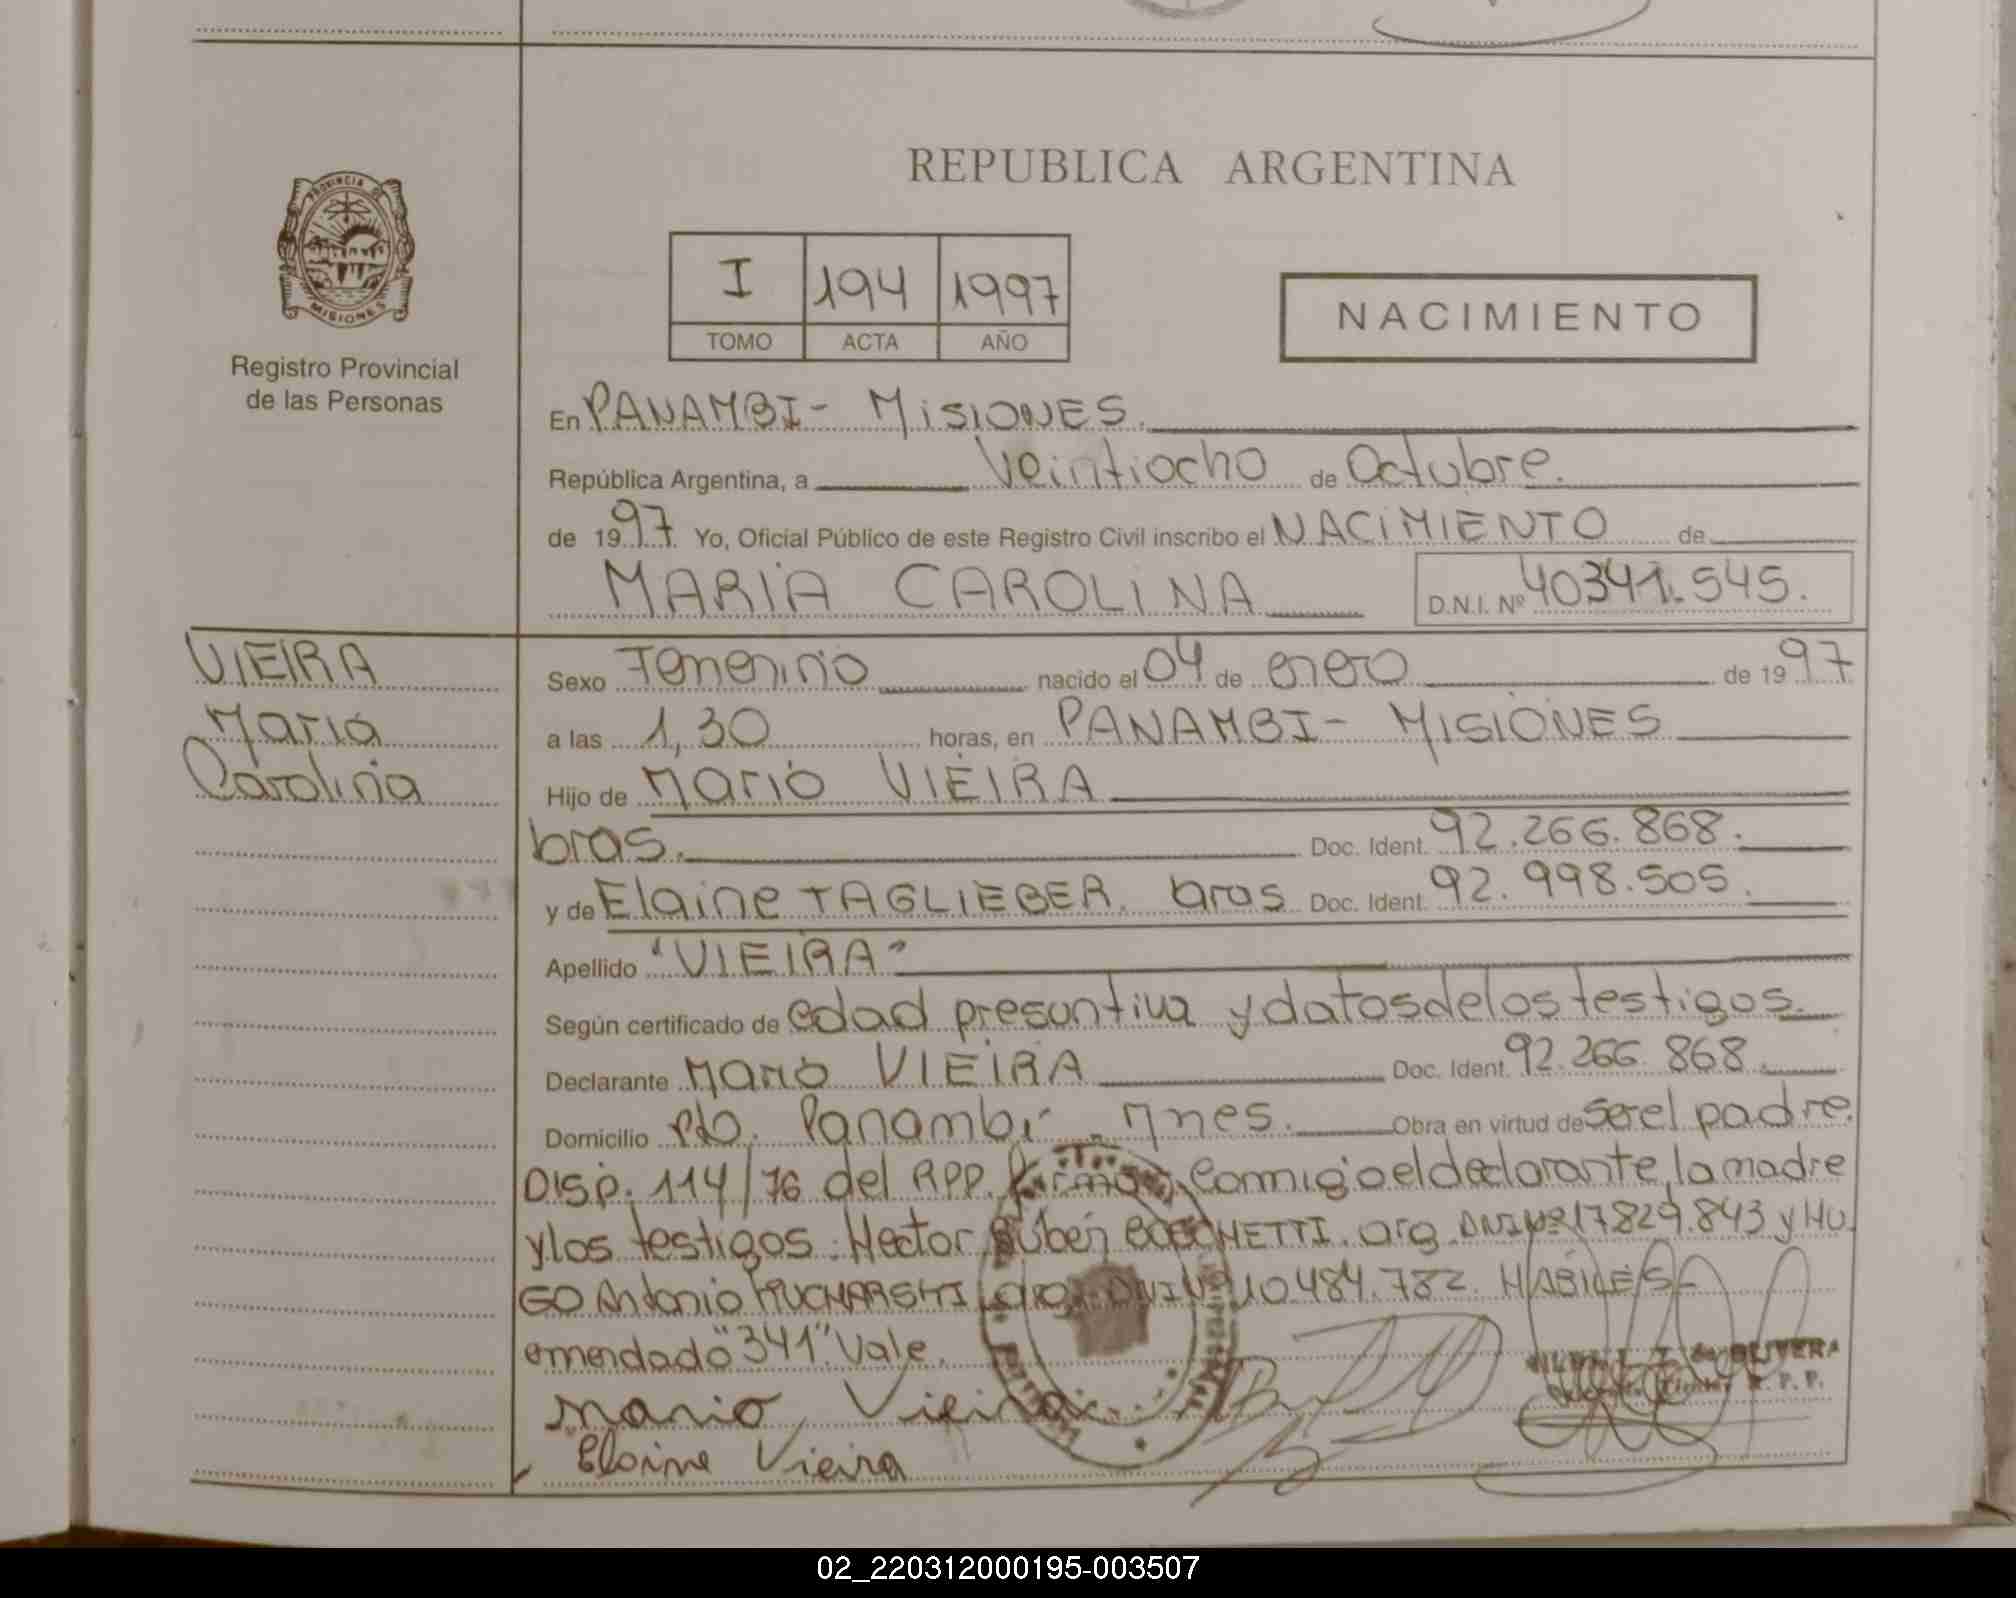 REPUBLICA ARGENTINA
PROVINCIA DE
MISIONES
Registro Provincial
de las Personas
I 194 1997
TOMO ACTA AÑO
NACIMIENTO
En PANAMBI - MISIONES.
República Argentina, a Veintiocho de Octubre.
de 1997. Yo, Oficial Público de este Registro Civil inscribo el NACIMIENTO de
MARIA CAROLINA D.N.I. Nº 40341.545.
VIEIRA
Maria
Carolina
Sexo Femenino nacido el 04 de enero de 1997
a las 1,30 horas, en PANAMBI - MISIONES
Hijo de Mario VIEIRA
bras. Doc. Ident. 92.266.868.
y de Elaine TAGLIEBER. bras Doc. Ident. 92.998.505.
Apellido "VIEIRA"
Según certificado de edad presuntiva y datos de los testigos.
Declarante Mario VIEIRA Doc. Ident. 92.266.868
Domicilio Pto. Panambi - Mnes. Obra en virtud de ser el padre.
DISP. 114/76 del RPP. Firman conmigo el declarante, la madre
y los testigos. Hector Ruben arg. DNI Nº 17829.843 y HU
GO Antonio arg. DNI Nº 10.484.782. HABILES-
emendado "341" Vale.
Mario Vieira
Elaine Vieira
OLIVERA
R. P. P.
02_220312000195-003507